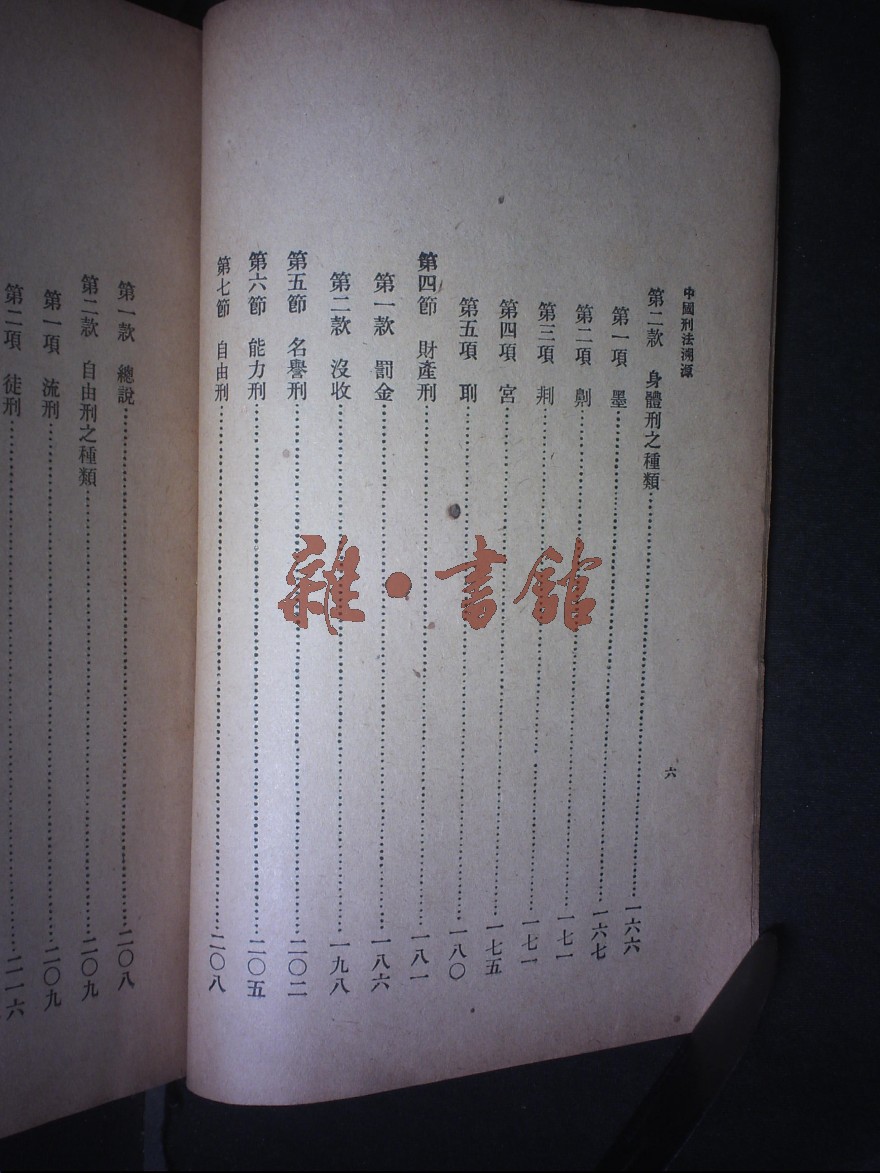 中國刑法溯源
六
第二款 身體刑之種類……一六六
第一項 墨……一六七
第二項 劓……一七一
第三項 刖……一七一
第四項 宮……一七五
第五項 刵……一八〇
第四節 財產刑……一八一
第一款 罰金……一八六
第二款 沒收……一九八
第五節 名譽刑……二〇二
第六節 能力刑……二〇五
第七節 自由刑……二〇八
第一款 總說……二〇八
第二款 自由刑之種類……二〇九
第一項 流刑……二〇九
第二項 徒刑……二一六
雜·書館